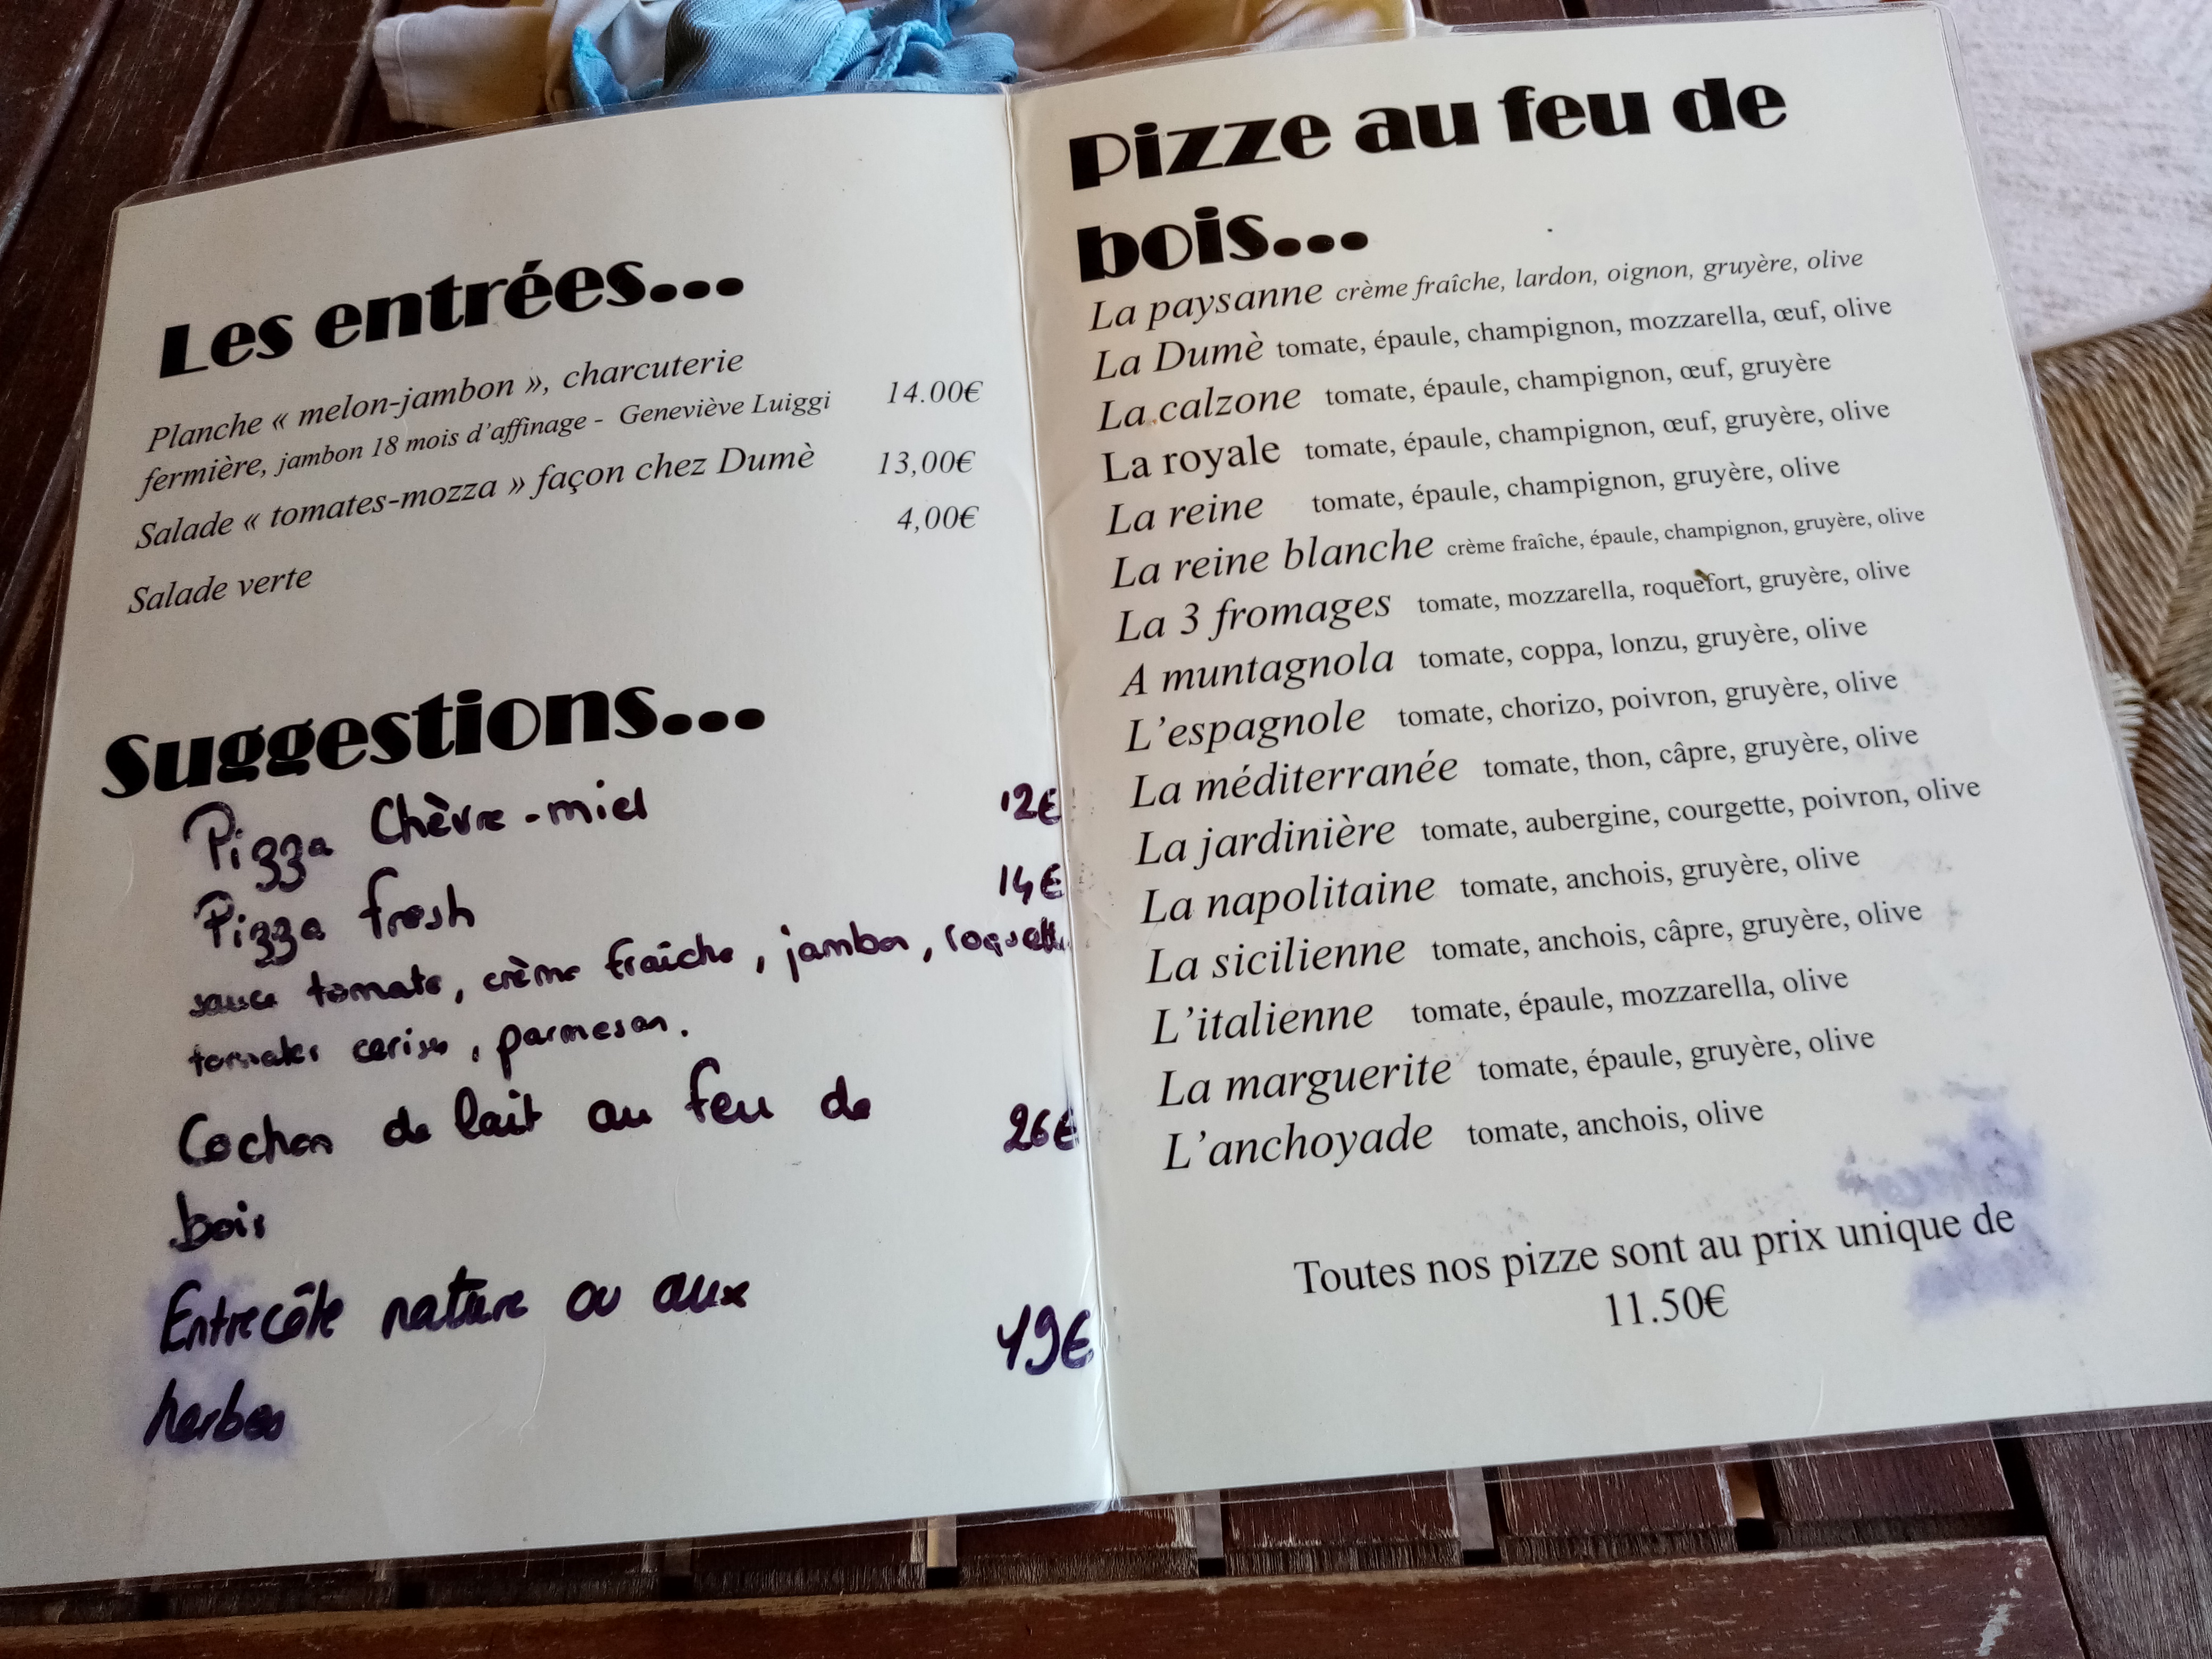 Les entrées...
Planche « melon-jambon », charcuterie
fermière, jambon 18 mois d'affinage - Geneviève Luiggi 14.00€
Salade « tomates-mozza » façon chez Dumè 13,00€
4,00€
Salade verte
Suggestions...
Pizza Chèvre-miel 12€
Pizza fresh 14€
sauce tomate, crème fraîche, jambon, roquette
tomates cerises, parmesan.
Cochon de lait au feu de 26€
bois
Entrecôte nature ou aux 19€
herbes
Pizze au feu de
bois...
La paysanne crème fraîche, lardon, oignon, gruyère, olive
La Dumè tomate, épaule, champignon, mozzarella, œuf, olive
La calzone tomate, épaule, champignon, œuf, gruyère
La royale tomate, épaule, champignon, œuf, gruyère, olive
La reine tomate, épaule, champignon, gruyère, olive
La reine blanche crème fraîche, épaule, champignon, gruyère, olive
La 3 fromages tomate, mozzarella, roquefort, gruyère, olive
A muntagnola tomate, coppa, lonzu, gruyère, olive
L'espagnole tomate, chorizo, poivron, gruyère, olive
La méditerranée tomate, thon, câpre, gruyère, olive
La jardinière tomate, aubergine, courgette, poivron, olive
La napolitaine tomate, anchois, gruyère, olive
La sicilienne tomate, anchois, câpre, gruyère, olive
L'italienne tomate, épaule, mozzarella, olive
La marguerite tomate, épaule, gruyère, olive
L'anchoyade tomate, anchois, olive
Toutes nos pizze sont au prix unique de
11.50€